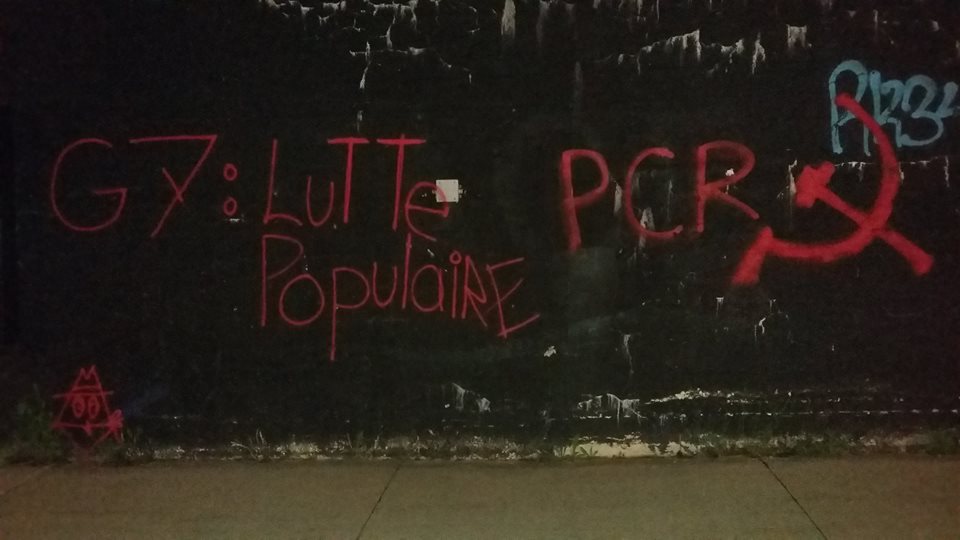 G7: LuTTe PCR
PopulaiRE